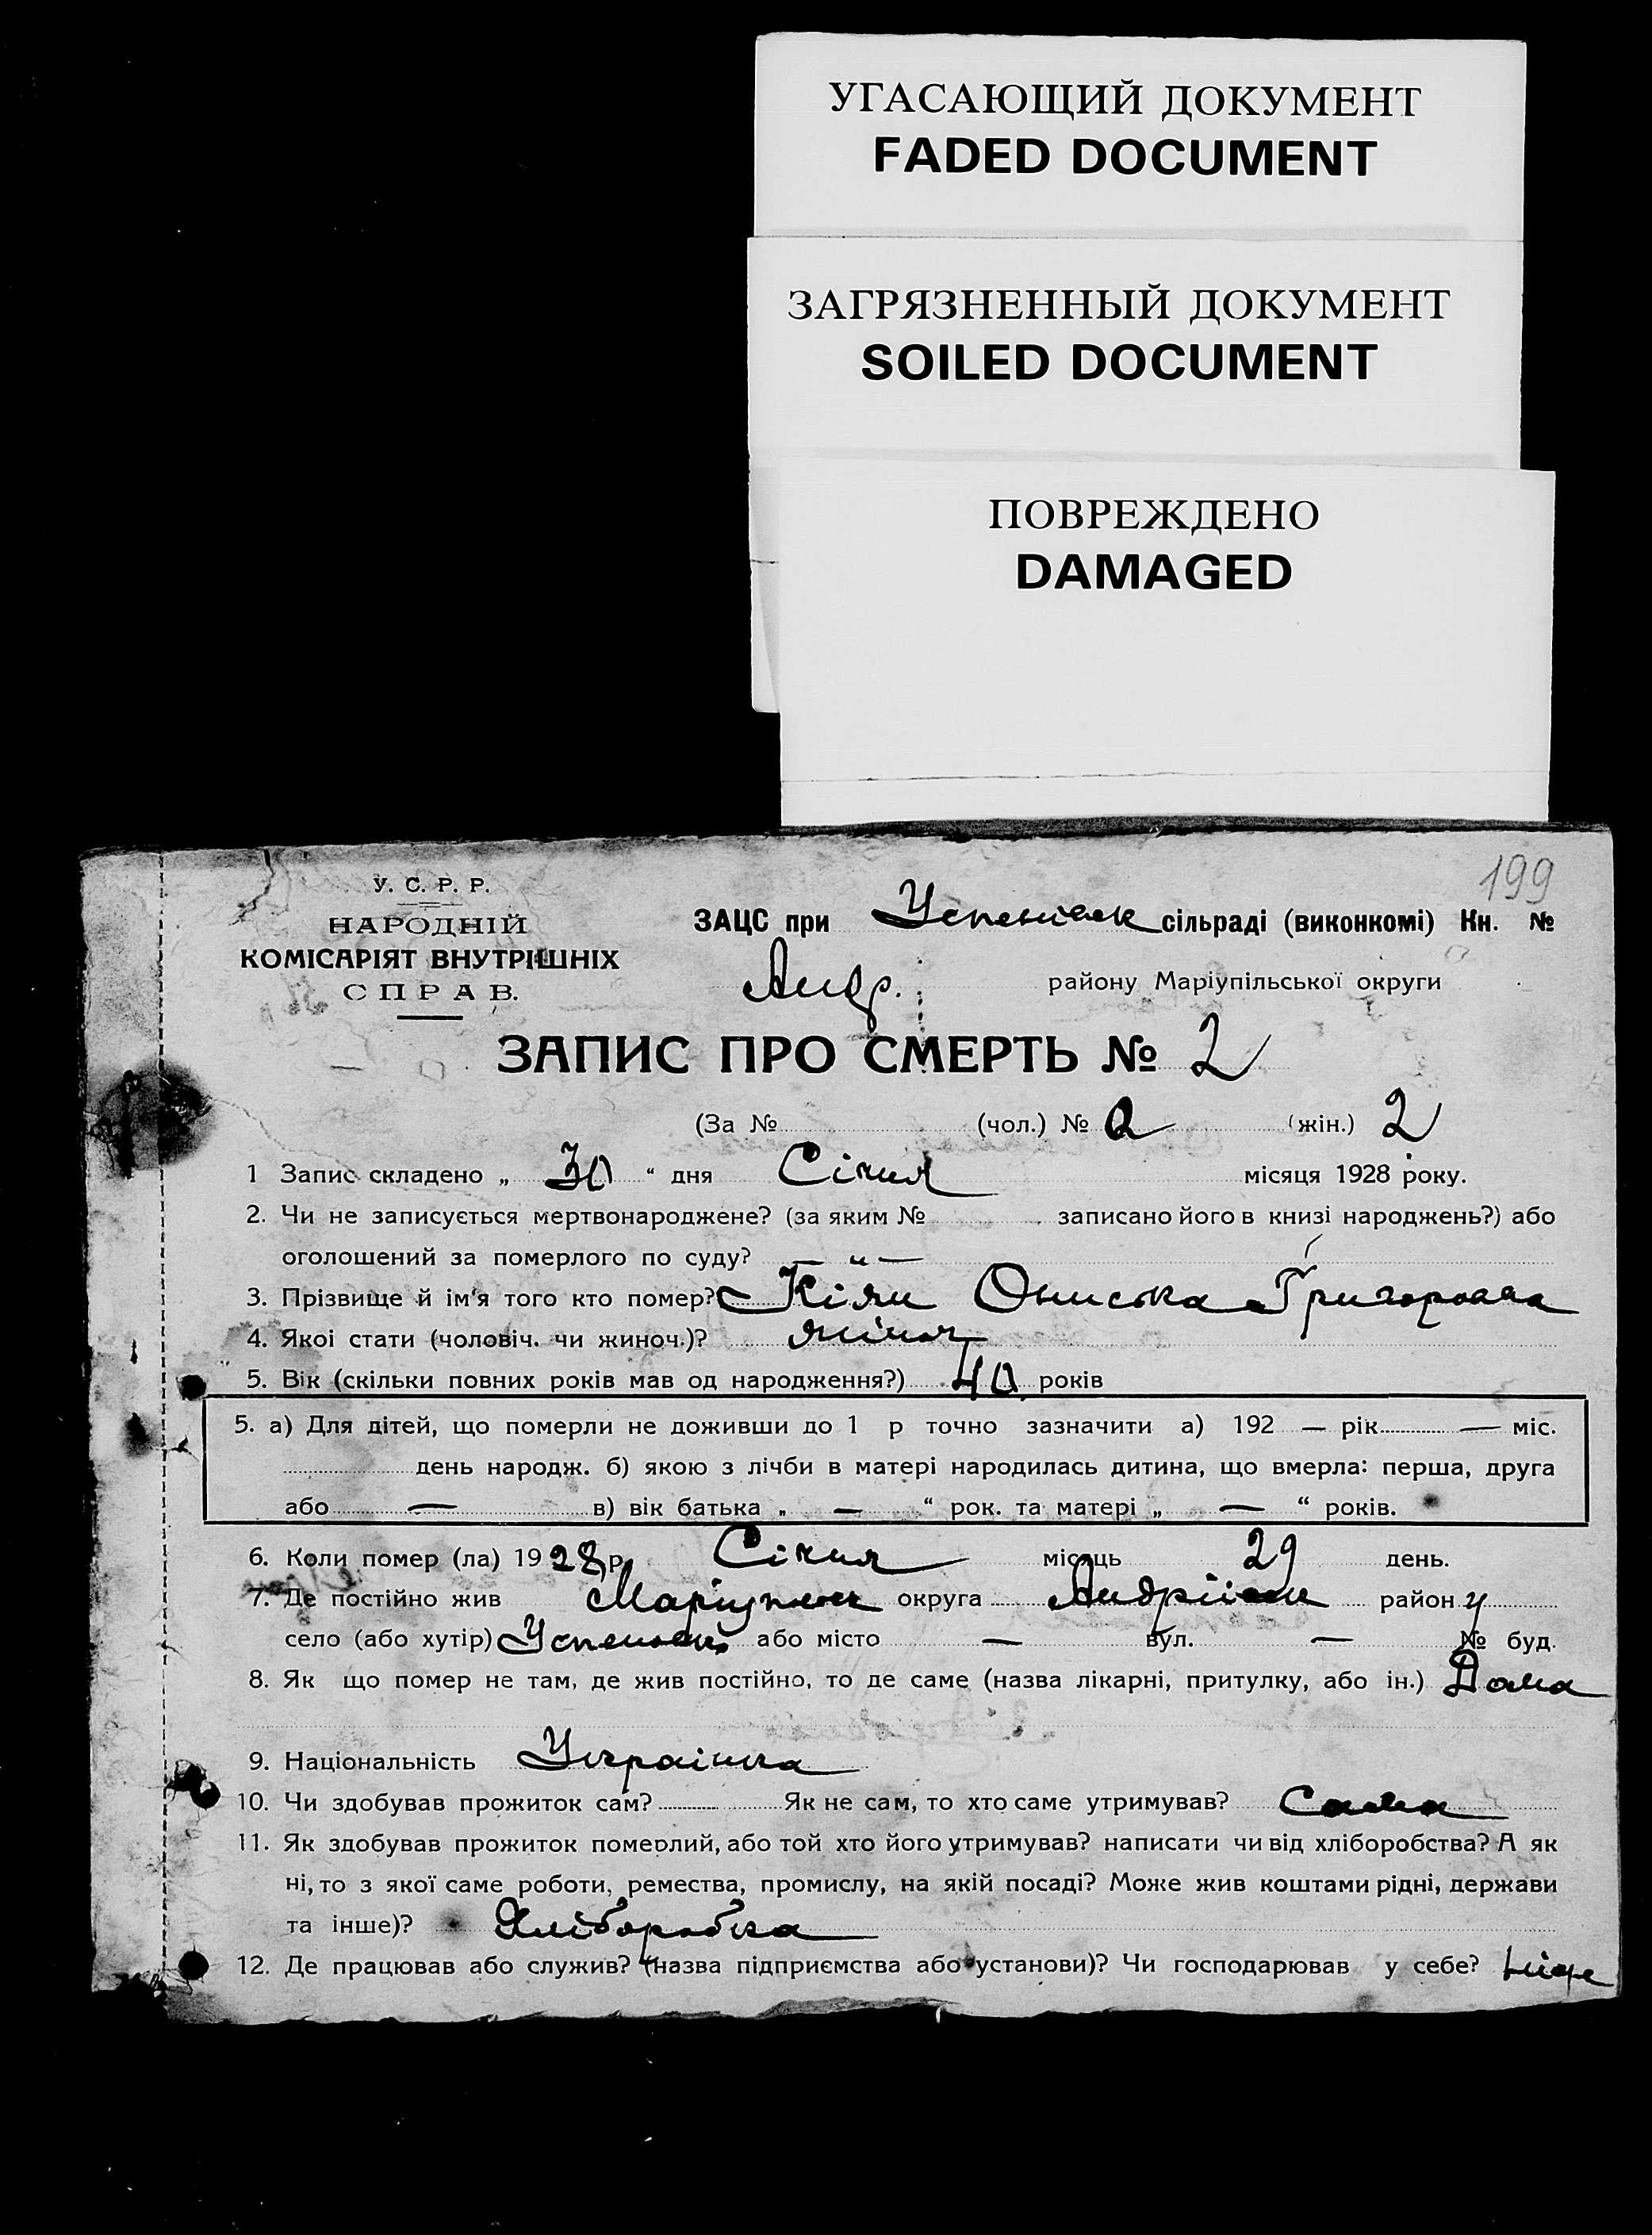 УГАСАЮЩИЙ ДОКУМЕНТ
FADED DOCUMENT
ЗАГРЯЗНЕННЫЙ ДОКУМЕНТ
SOILED DOCUMENT
ПОВРЕЖДЕНО
DAMAGED
199
У. С. Р. Р.
НАРОДНІЙ
КОМІСАРІЯТ ВНУТРІШНІХ
СПРАВ.
ЗАЦС при сільраді (виконкомі) Кн. №
Андр. району Маріупільської округи
ЗАПИС ПРО СМЕРТЬ № 2
(За № (чол.) № (жін.) 2
1 Запис складено „ 30 “ дня Січня місяця 1928 року.
2. Чи не записується мертвонароджене? (за яким № записано його в книзі народжень?) або
оголошений за померлого по суду? — „ —
3. Прізвище й ім'я того кто помер? Кіян Ониська Григоровна
4. Якої стати (чоловіч. чи жиноч.)? жіноч
5. Вік (скільки повних років мав од народження?) 40 років
5. а) Для дітей, що померли не доживши до 1 р точно зазначити а) 192 — рік — міс.
день народж. б) якою з лічби в матері народилась дитина, що вмерла: перша, друга
або — в) вік батька „ — “ рок. та матері „ — “ років.
6. Коли помер (ла) 1928 р. Січня місяць 29 день.
7. Де постійно жив округа район у
село (або хутір) або місто — вул. — № буд.
8. Як що помер не там, де жив постійно, то де саме (назва лікарні, притулку, або ін.) Дома
9. Національність Українка
10. Чи здобував прожиток сам? Як не сам, то хто саме утримував? Сама
11. Як здобував прожиток померлий, або той хто його утримував? написати чи від хліборобства? А як
ні, то з якої саме роботи, ремества, промислу, на якій посаді? Може жив коштами рідні, держави
та інше)? Хліборобка
12. Де працював або служив? (назва підприємства або установи)? Чи господарював у себе? Ніде